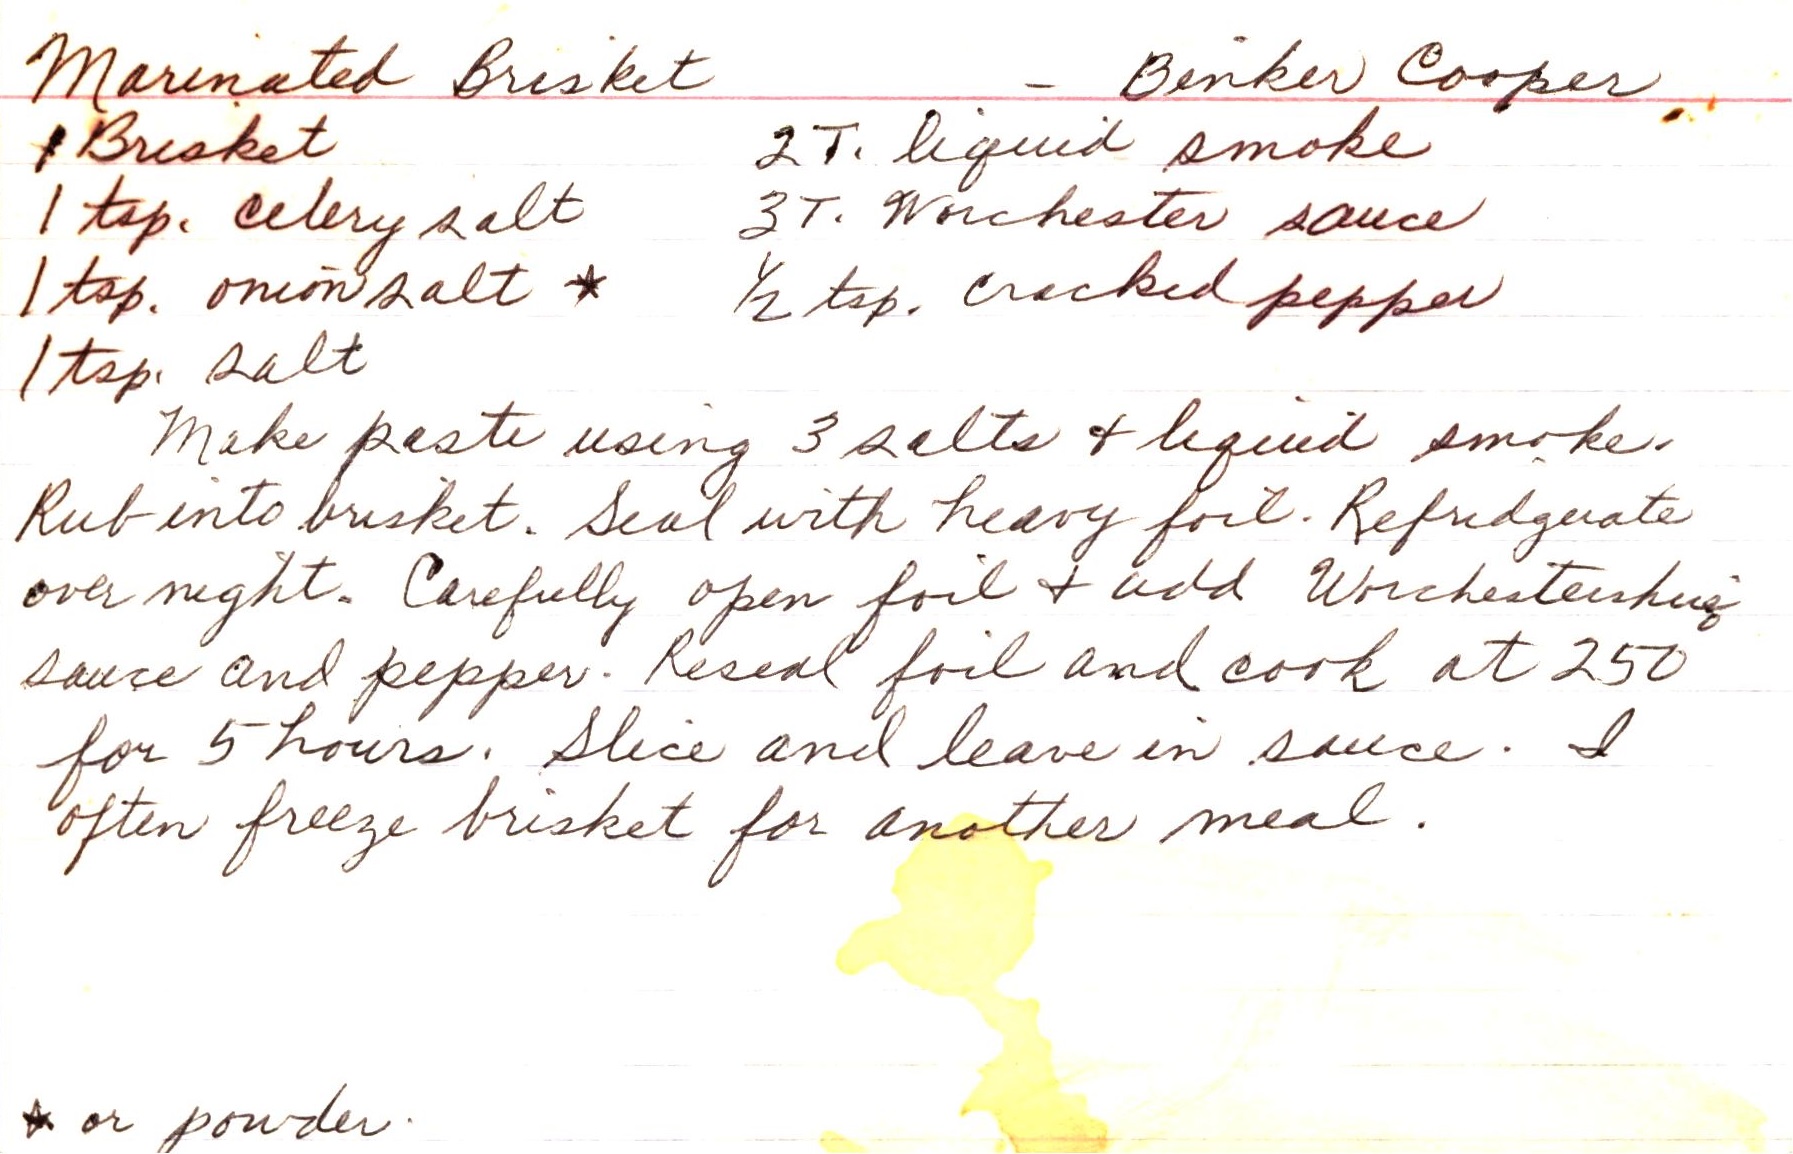 Marinated Brisket - Binker Cooper
1 Brisket 2 T. liquid smoke
1 tsp. celery salt 3 T. Worchester sauce
1 tsp. onion salt * 1/2 tsp. cracked pepper
1 tsp. salt
Make paste using 3 salts & liquid smoke.
Rub into brisket. Seal with heavy foil. Refridgerate
over night. Carefully open foil & add Worchestershire
sauce and pepper. Reseal foil and cook at 250
for 5 hours. Slice and leave in sauce. I
often freeze brisket for another meal.
* or powder.